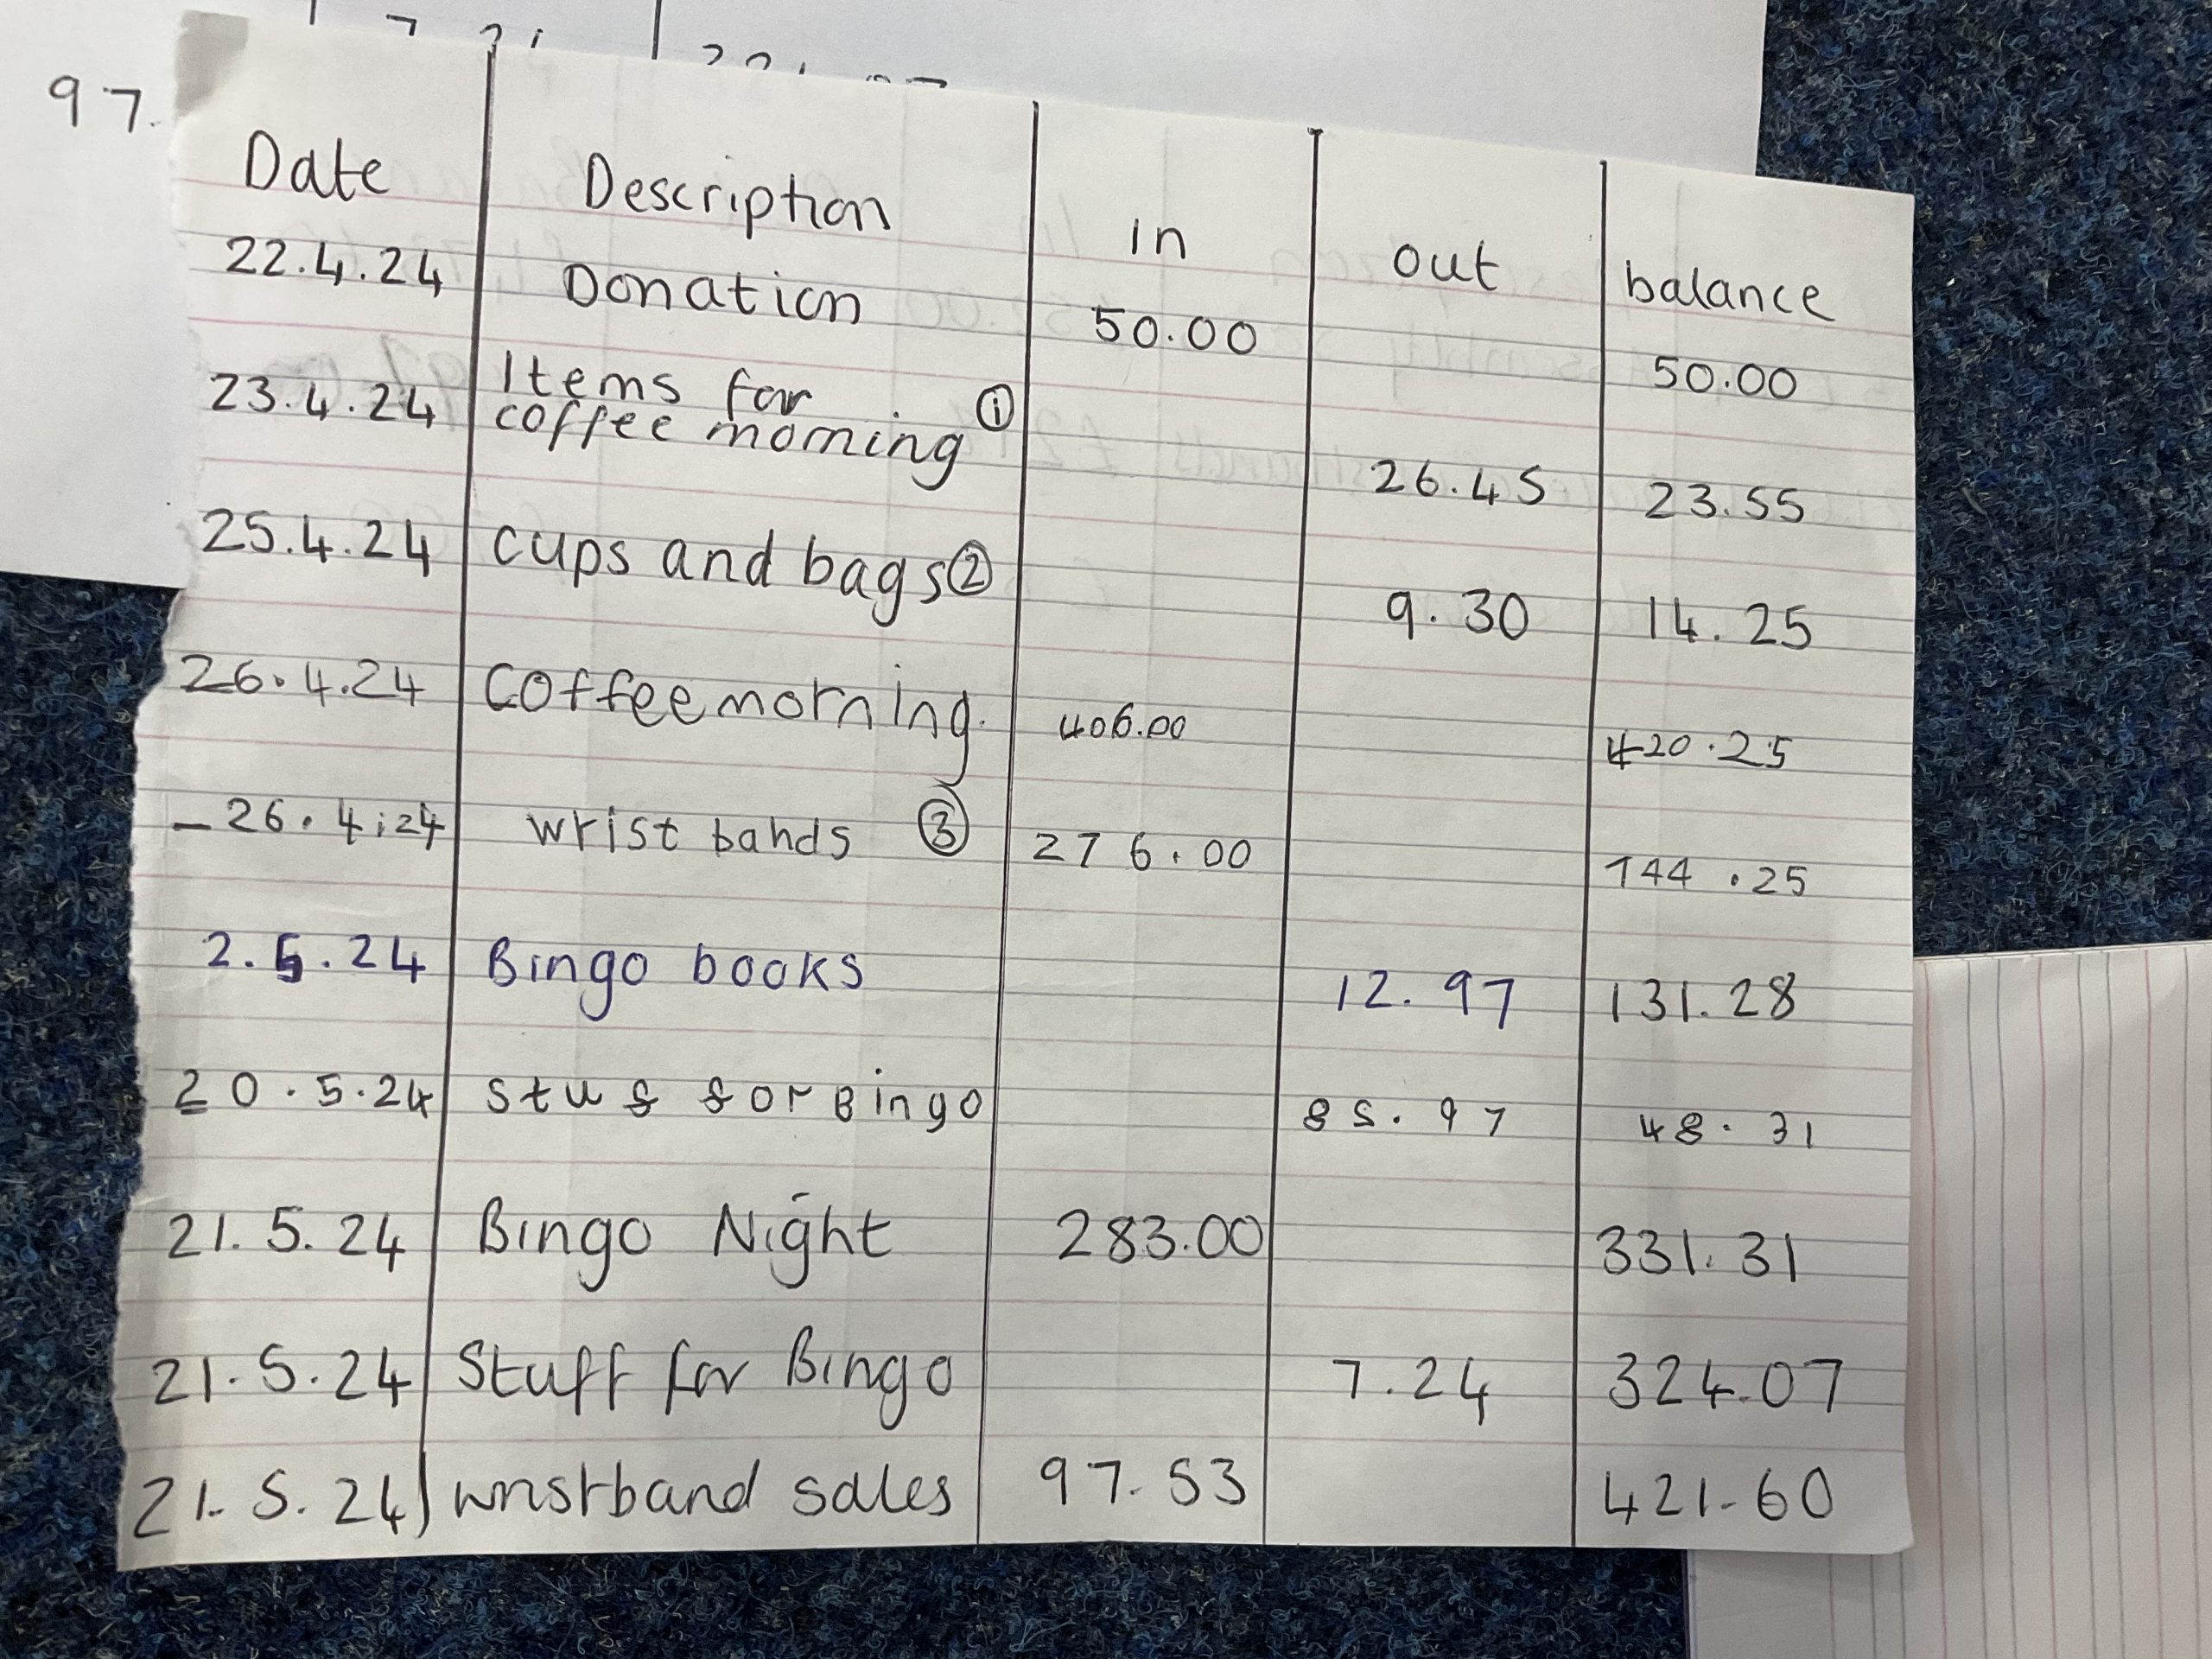 97.
Date Description in out balance
22.4.24 Donation 50.00 50.00
23.4.24 Items for
coffee morning ① 26.45 23.55
25.4.24 cups and bags ② 9.30 14.25
26.4.24 coffee morning. 406.00 420.25
- 26.4.24 wrist bands ③ 276.00 144.25
2.5.24 Bingo books 12.97 131.28
20.5.24 stuf for Bingo 85.97 48.31
21.5.24 Bingo Night 283.00 331.31
21.5.24 Stuff for Bingo 7.24 324.07
21.5.24 wristband sales 97.53 421.60